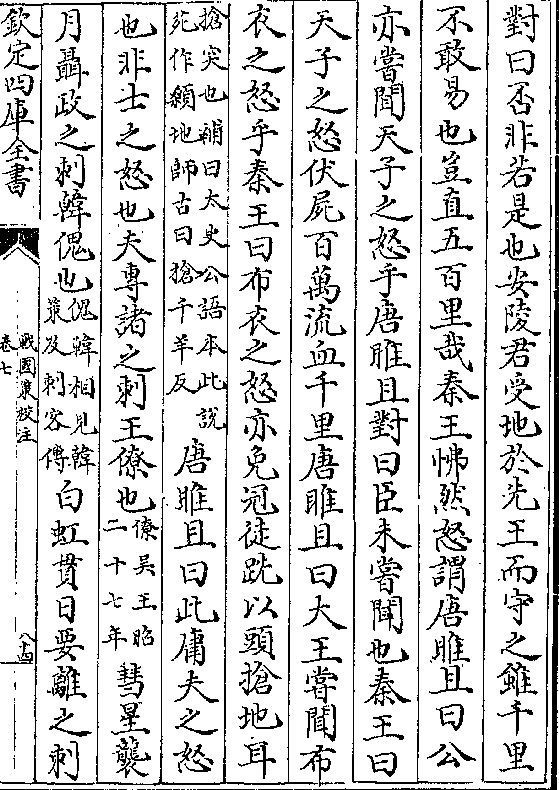 對曰否非若是也安陵君受地於先王而守之雖千里
不敢易也豈直五百里哉秦王怫然怒謂唐雎且曰公
亦嘗聞天子之怒乎唐雎且對曰臣未嘗聞也秦王曰
天子之怒伏屍百萬流血千里唐雎且曰大王嘗聞布
衣之怒乎秦王曰布衣之怒亦免冠徒跣以頭搶地耳
搶突也補曰太史公語本此說
死作額地師古曰搶千羊反
唐雎且曰此庸夫之怒
也非士之怒也夫專諸之刺王僚也
僚吳王昭
二十七年
彗星襲
月聶政之刺韓傀也
傀韓相見韓
策及刺客傳
白虹貫日要離之刺
欽定四庫全書
戰國策校注
卷七
八十四